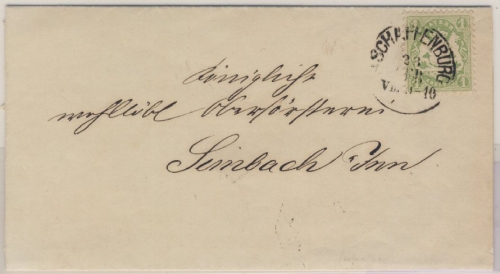 ASCHAFFENBURG
23
FEB
9-10
1
1
Königliche
wohllöbl Oberförsterei
Simbach Inn